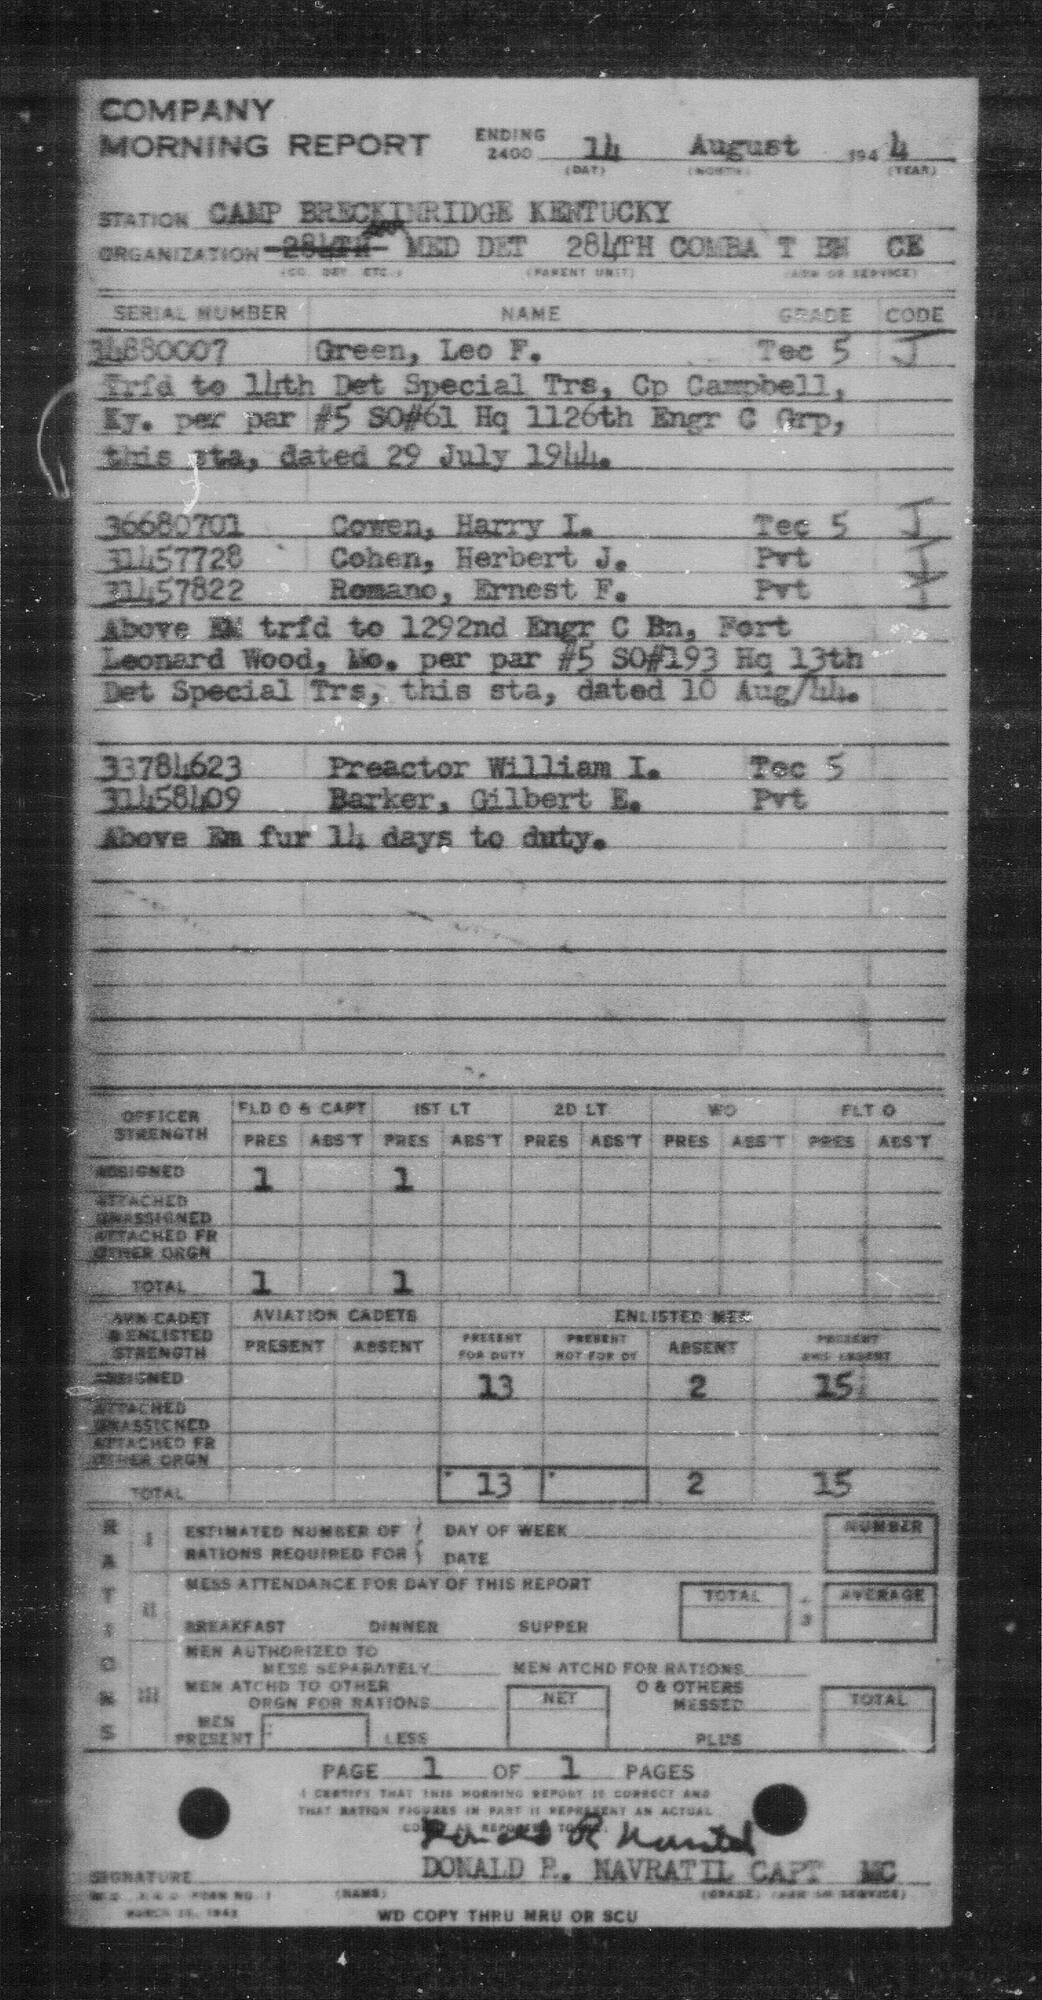 COMPANY
MORNING REPORT ENDING 2400 14 August 194 4
(DAY) (MONTH) (YEAR)
STATION CAMP BRECKINRIDGE KENTUCKY
ORGANIZATION 284TH MED DET 284TH COMBA T BN CE
(CO. DET. ETC.) (PARENT UNIT) (ARM OR SERVICE)
SERIAL NUMBER NAME GRADE CODE
34880007 Green, Leo F. Tec 5 J
Trfd to 14th Det Special Trs, Cp Campbell,
Ky. per par #5 SO#61 Hq 1126th Engr C Grp,
this sta, dated 29 July 1944.
36680701 Cowen, Harry I. Tec 5 J
31457728 Cohen, Herbert J. Pvt J
31457822 Romano, Ernest F. Pvt
Above EM trfd to 1292nd Engr C Bn, Fort
Leonard Wood, Mo. per par #5 SO#193 Hq 13th
Det Special Trs, this sta, dated 10 Aug/44.
33784623 Preactor William I. Tec 5
31458409 Barker, Gilbert E. Pvt
Above Em fur 14 days to duty.
OFFICER STRENGTH FLD O & CAPT 1ST LT 2D LT WO FLT O
PRES ABS'T PRES ABS'T PRES ABS'T PRES ABS'T PRES ABS'T
ASSIGNED 1 1
ATTACHED
UNASSIGNED
ATTACHED FR
OTHER ORGN
TOTAL 1 1
AVN CADET & ENLISTED STRENGTH AVIATION CADETS ENLISTED MEN
PRESENT ABSENT PRESENT FOR DUTY PRESENT NOT FOR DY ABSENT PRESENT AND ABSENT
ASSIGNED 13 2 15
ATTACHED
UNASSIGNED
ATTACHED FR
OTHER ORGN
TOTAL 13 2 15
RATIONS
I ESTIMATED NUMBER OF DAY OF WEEK NUMBER
RATIONS REQUIRED FOR DATE
II MESS ATTENDANCE FOR DAY OF THIS REPORT TOTAL ÷ 3 AVERAGE
BREAKFAST DINNER SUPPER
III MEN AUTHORIZED TO
MESS SEPARATELY MEN ATCHD FOR RATIONS
MEN ATCHD TO OTHER
ORGN FOR RATIONS NET O & OTHERS
MESSED TOTAL
MEN
PRESENT LESS PLUS
PAGE 1 OF 1 PAGES
I CERTIFY THAT THIS MORNING REPORT IS CORRECT AND
THAT RATION FIGURES IN PART II REPRESENT AN ACTUAL
Donald R Navratil
DONALD R. NAVRATIL CAPT MC
SIGNATURE
W.D. A.G.O. FORM NO. 1 (NAME) (GRADE) (ARM OR SERVICE)
WD COPY THRU MRU OR SCU